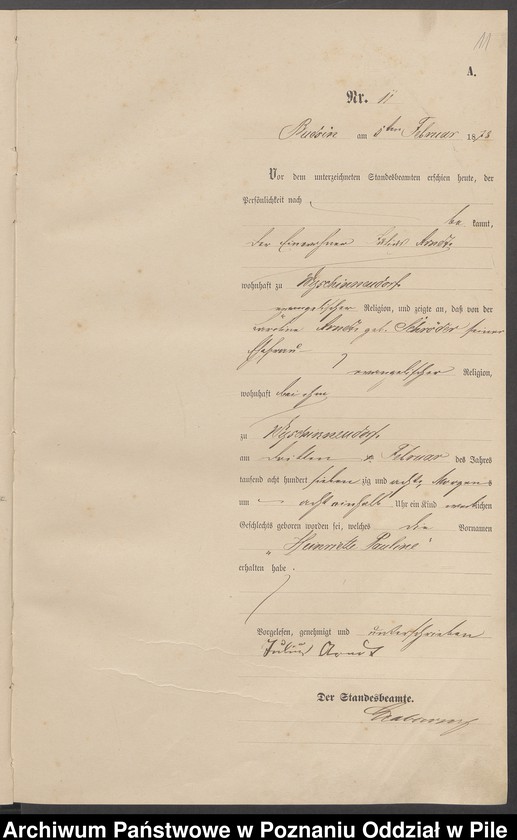 11
A.
Nr. 11
am 5ten Februar 1878
Vor dem unterzeichneten Standesbeamten erschien heute, der
Persönlichkeit nach
be kannt,
der Einwohner Julius Arndt
wohnhaft zu
evangelischer Religion, und zeigte an, daß von der
Caroline Arndt geb. Schröder seiner
Ehefrau
evangelischer Religion,
wohnhaft bei ihm
zu
am dritten Februar des Jahres
tausend acht hundert sieben zig und acht, Morgens
um acht einhalb Uhr ein Kind weiblichen
Geschlechts geboren worden sei, welches die Vornamen
„Heinriette Pauline“
erhalten habe.
Vorgelesen, genehmigt und unterschrieben
Julius Arndt
Der Standesbeamte.
Archiwum Państwowe w Poznaniu Oddział w Pile